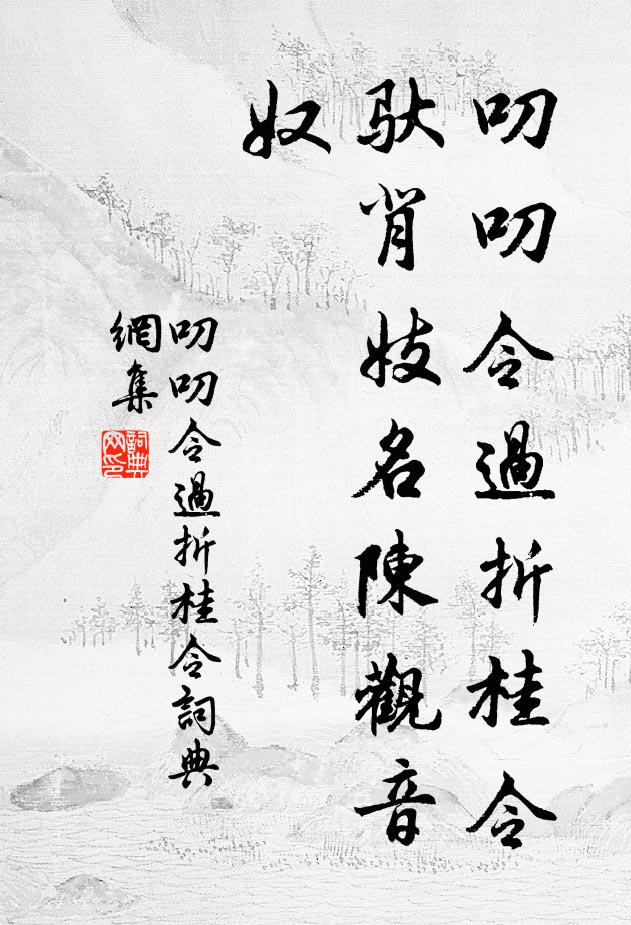 叨叨令過折桂令
馱背妓名陳觀音
奴
叨叨令過折桂令詞典
網集
詞典網印